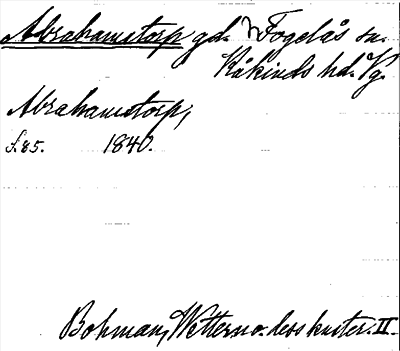 Abrahamstorp gd. N Fogelås sn.
Kåkinds hd. Vg.
Abrahamstorp,
s. 85. 1840.
Bohman, Wettern o. dess kuster. II.